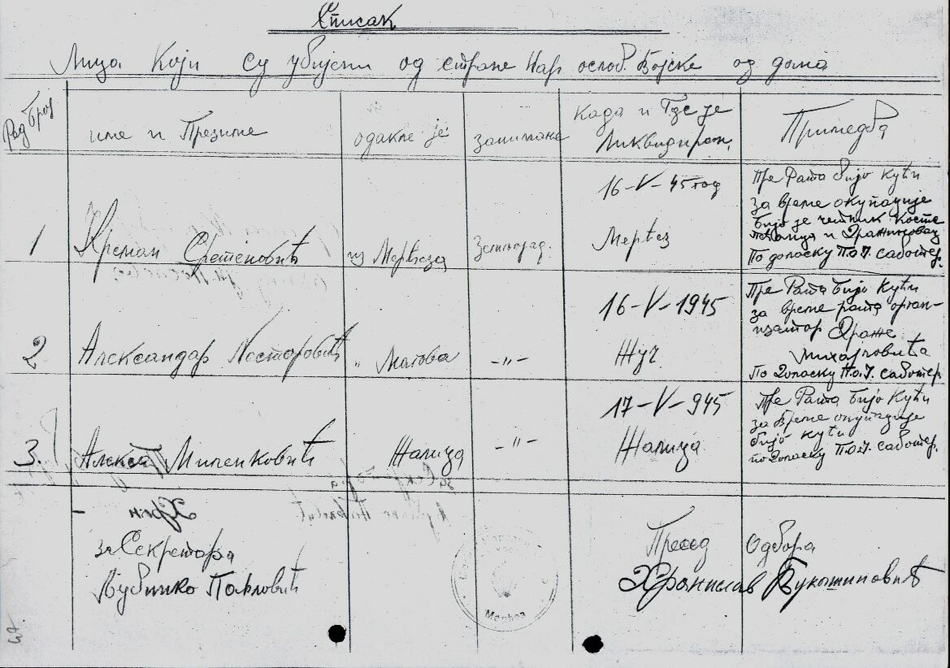 Списак
Лица Који су убијени од стране Нар ослоб. Војске од дома
Ред Број
име и Презиме
одакле је
занимање
Када и Где је
Ликвидиран.
Примедба
1
Сретеновић
из Мервеза
Земљорад.
16-V-45 год
Мервез
Пре Рата Бијо Кући
за време окупације
Био је четник Косте
и
По доласку П.О.Ј. саботер.
2
Александар Несторовић
" Магова
-"-
16-V-1945
Жуч.
Пре Рата Бијо Кући
за време рата орган-
изатор Драже
Михајловића
По Доласку П.О.Ј. саботер
3.
Алекса Миленковић
Жалица
-"-
17-V-945
Жалица.
Пре Рата Бијо Кући
за време окупације
бијо кући
по доласку П.О.Ј. саботер.
за Секретара
Љубинко Павловић
Пресед Одбора
Хранислав Вукашиновић